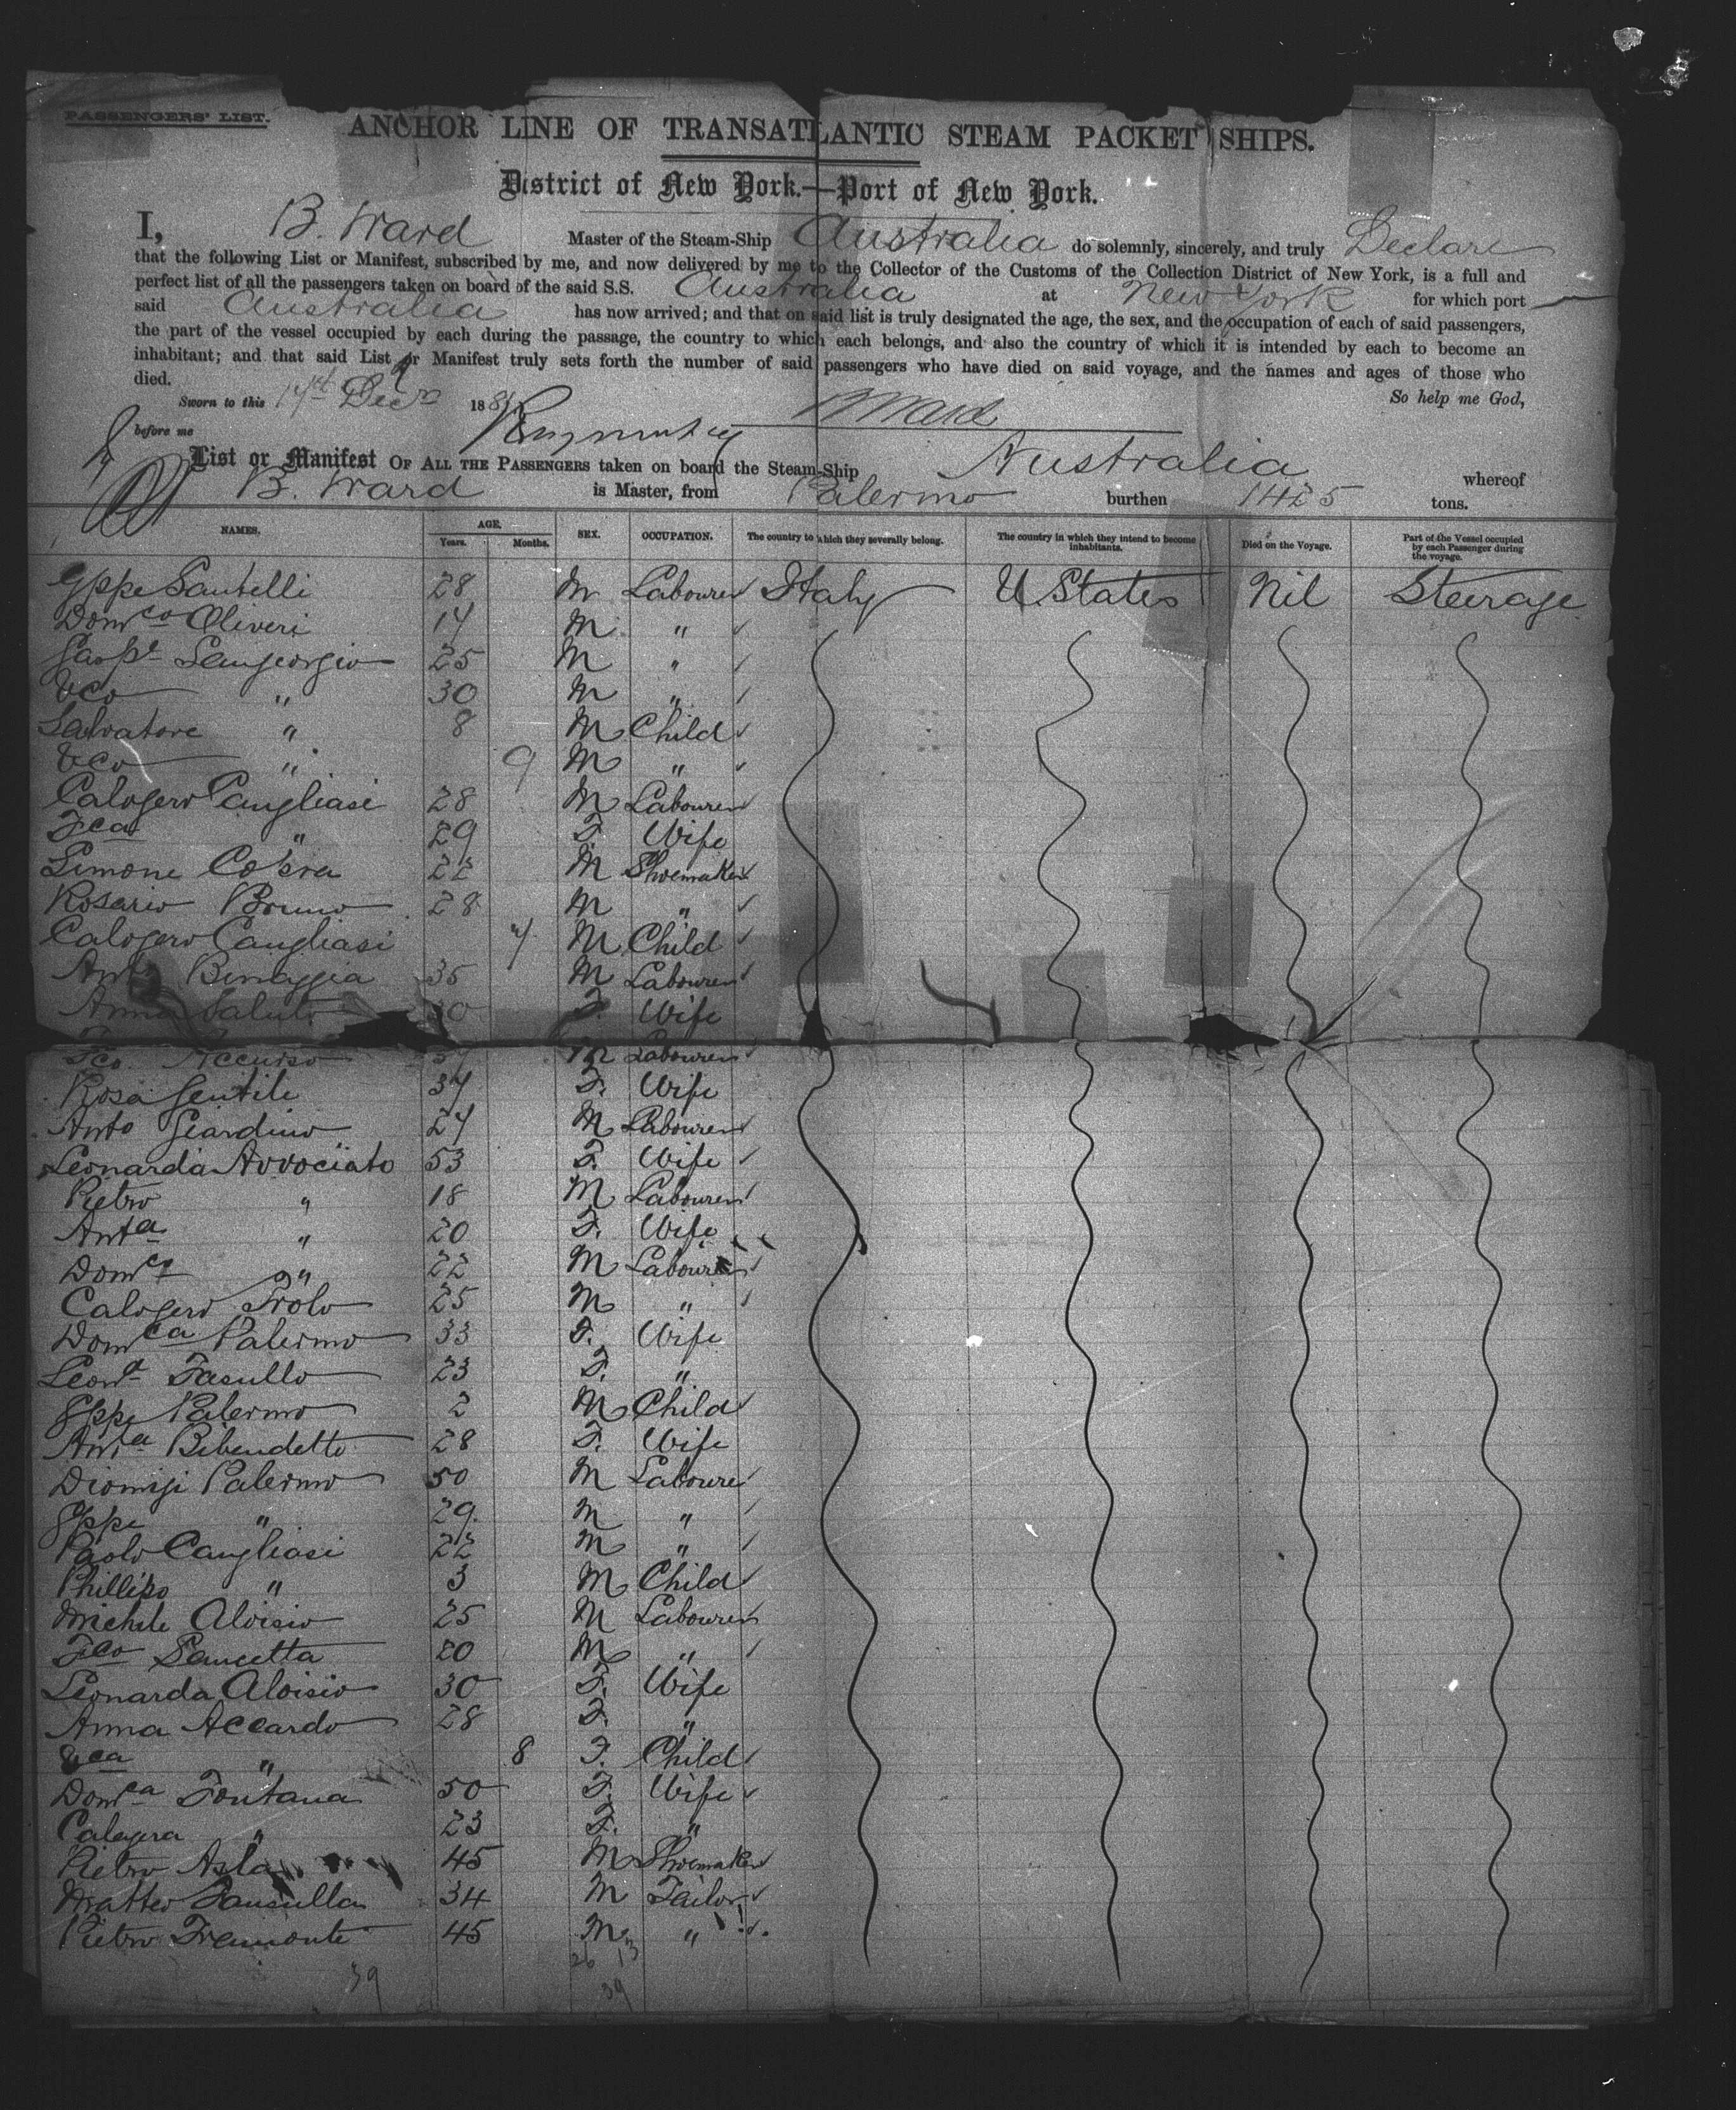 PASSENGERS' LIST.
ANCHOR LINE OF TRANSATLANTIC STEAM PACKET SHIPS.
District of New York.—Port of New York.
I, B. Ward Master of the Steam-Ship Australia do solemnly, sincerely, and truly Declare
that the following List or Manifest, subscribed by me, and now delivered by me to the Collector of the Customs of the Collection District of New York, is a full and
perfect list of all the passengers taken on board of the said S.S. Australia at New York for which port
said Australia has now arrived; and that on said list is truly designated the age, the sex, and the occupation of each of said passengers,
the part of the vessel occupied by each during the passage, the country to which each belongs, and also the country of which it is intended by each to become an
inhabitant; and that said List or Manifest truly sets forth the number of said passengers who have died on said voyage, and the names and ages of those who
died.
So help me God,
Sworn to this Decr 188
B Ward
before me
List or Manifest OF ALL THE PASSENGERS taken on board the Steam-Ship Australia whereof
B. Ward is Master, from Palermo burthen 1425 tons.
NAMES. AGE. Years. Months. SEX. OCCUPATION. The country to which they severally belong. The country in which they intend to become inhabitants. Died on the Voyage. Part of the Vessel occupied by each Passenger during the voyage.
Gppe Santelli 28 M Labourer Italy U States Nil Steerage
Domco Oliveri 14 M "
Gaspe Sangeorgio 25 M "
Vco " 30 M "
Salvatore " 8 M Child
Vco " 9 M "
Calogero Cangliasi 28 M Labourer
Fca " 29 F. Wife
Simone Cobra 22 M Shoemaker
Rosario Bruno 28 M "
Calogero Cangliasi M Child
Binaggia 35 M Labourer
Anna Saluto F. Wife
Fco. Accurso M Labourer
Rosa Gentile 37 F. Wife
Anto Giardino 27 M Labourer
Leonarda Avvociato 53 F. Wife
Pietro " 18 M Labourer
Anta " 20 F. Wife
Domco " 22 M Labourer
Calogero Frolo 25 M "
Domca Palermo 33 F. Wife
Leonda Fasullo 23 F. "
Gppe Palermo 2 M Child
Anta Bibendetto 28 F. Wife
Dionigi Palermo 50 M Labourer
Gppe " 29. M "
Paolo Cangliasi 22 M "
Phillipo " 3 M Child
Michele Aloisio 25 M Labourer
Fco Sancetta 20 M "
Leonarda Aloisio 30 F. Wife
Anna Accardo 28 F. "
Vca " 8 F. Child
Domca Fontana 50 F. Wife
Calogera " 23 F. "
Pietro Asla 45 M Shoemaker
Matteo Sansulla 34 M Tailor
Pietro Tremonte 45 M "
26 13
39 39